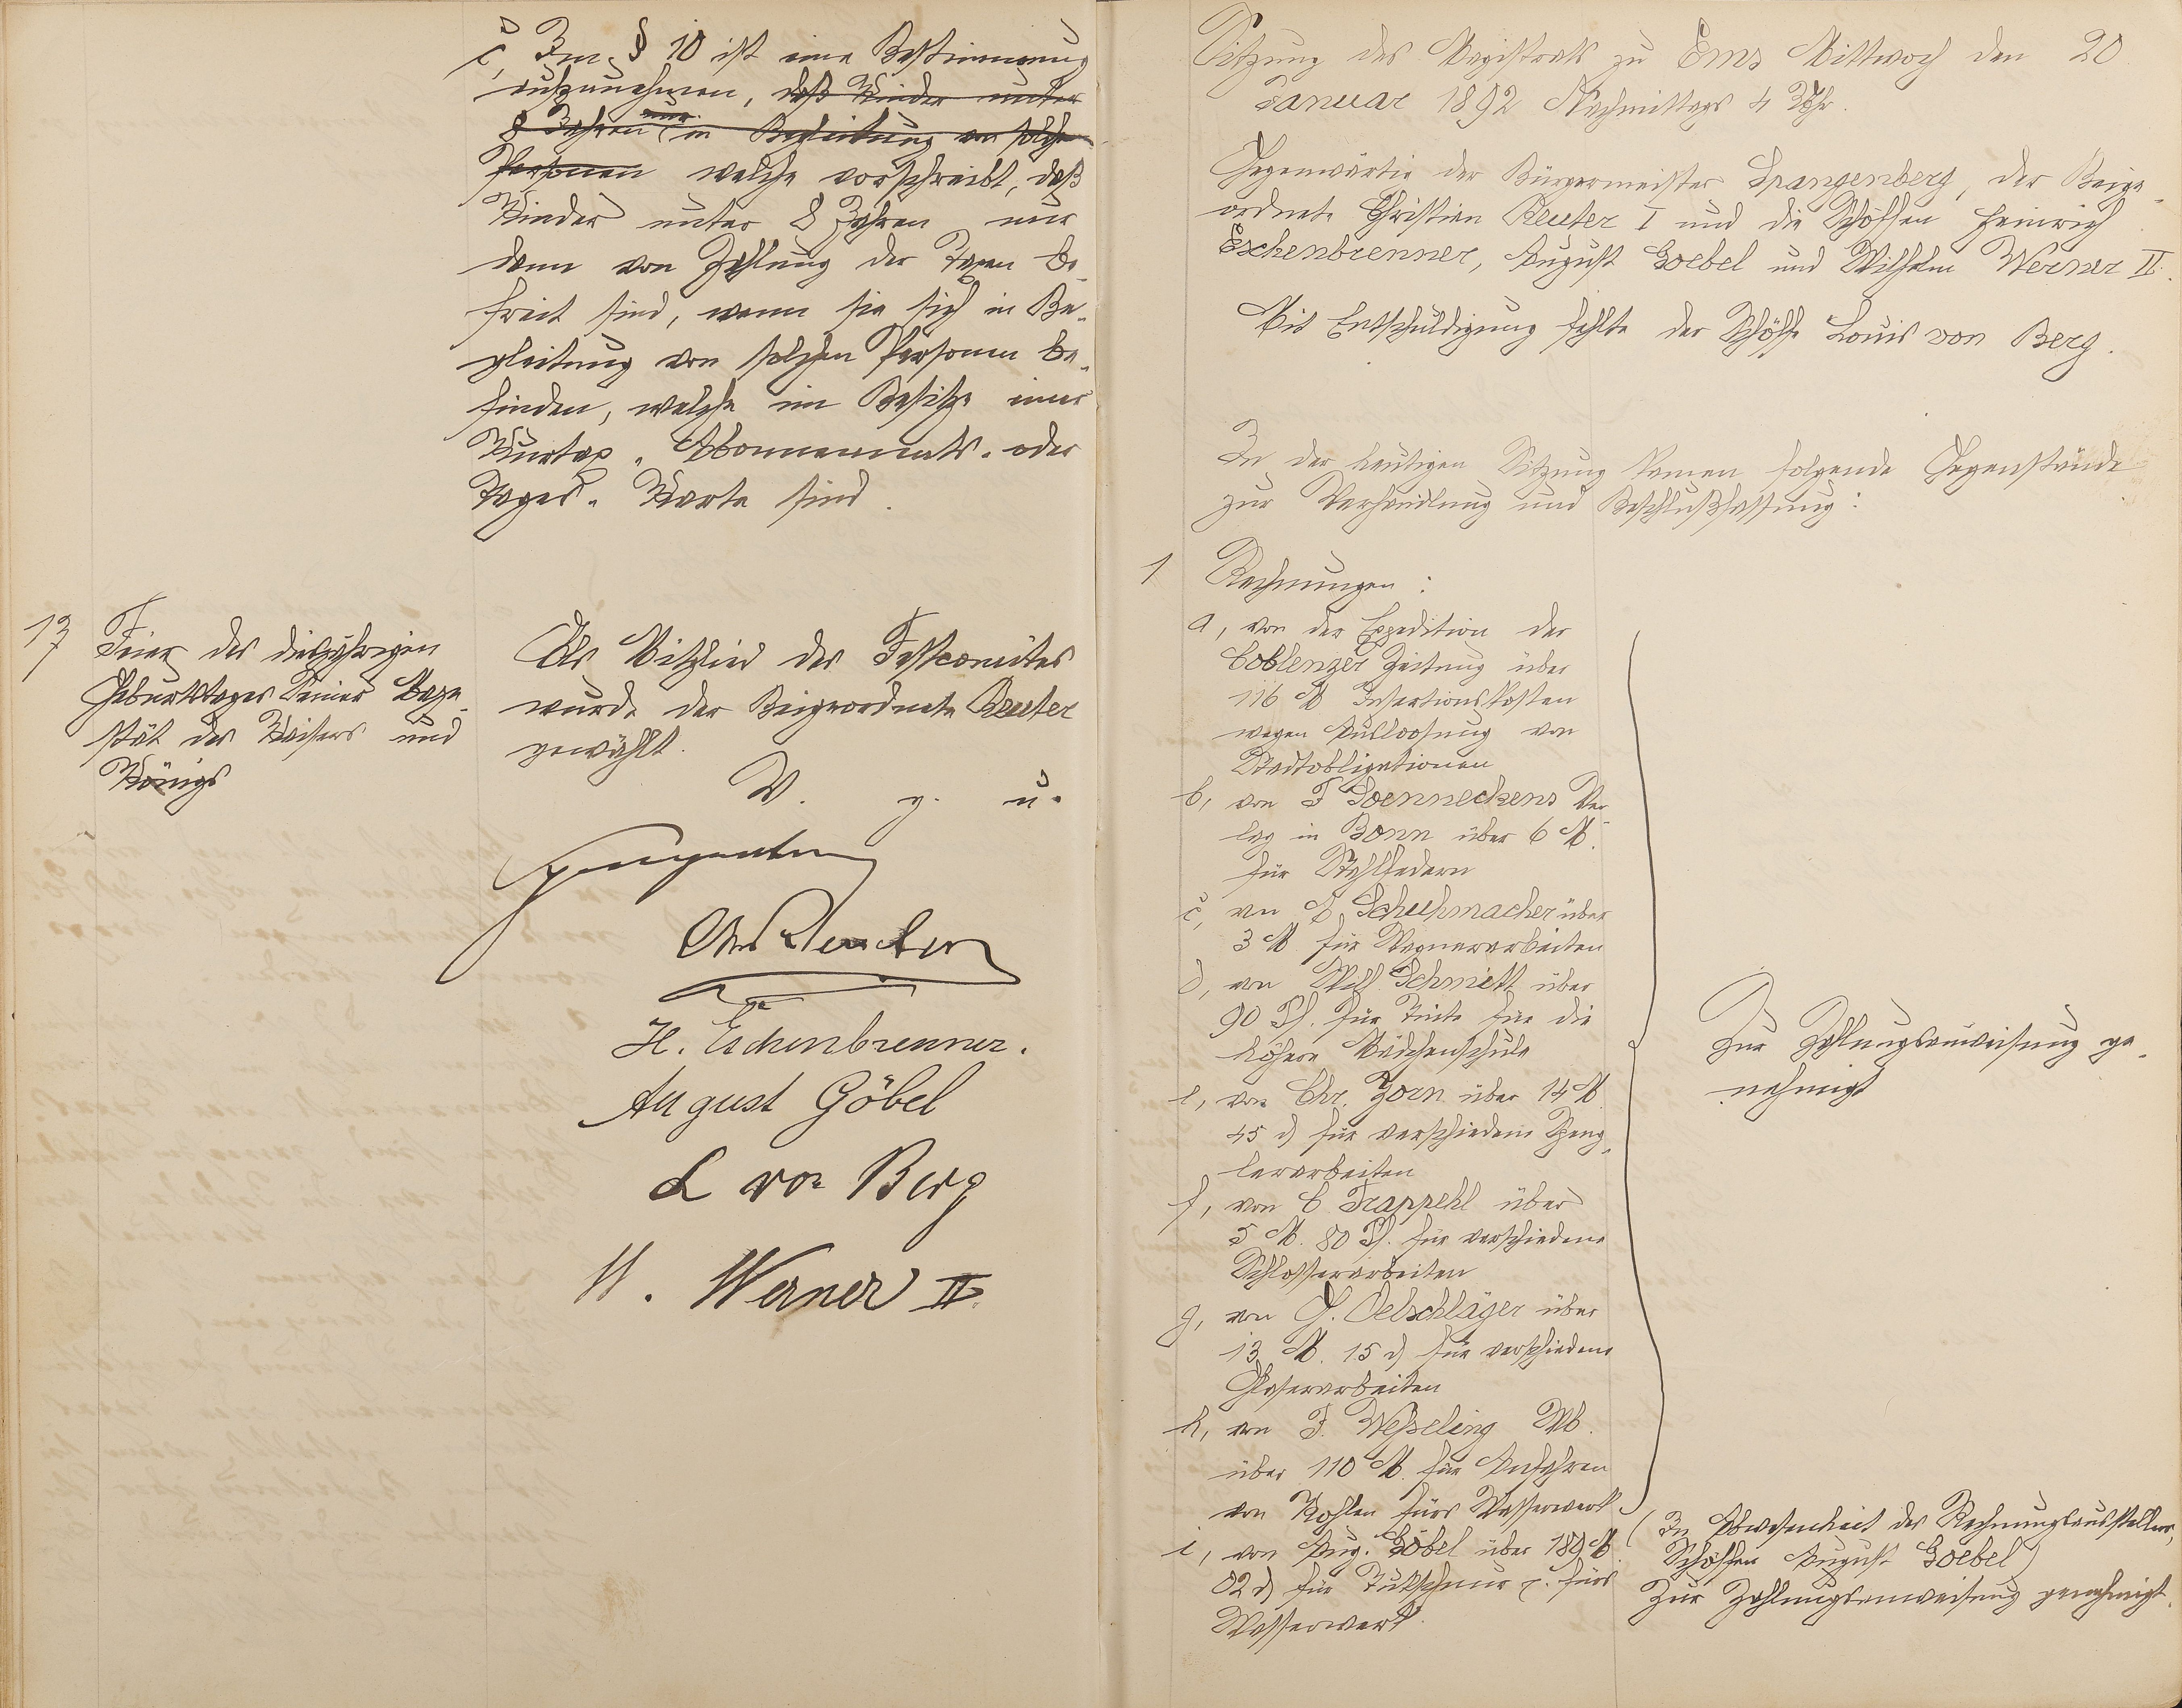 c, Im § 10 ist eine Bestimmung
aufzunehmen, daß Kinder unter
8 Jahren nur in Begleitung von solchen
Personen welche vorschreibt, daß
Kinder unter 8 Jahren nur
dann von Zahlung der Taxen be-
freit sind, wenn sie sich in Be-
gleitung von solchen Personen be-
finden, welche im Besitze einer
Kurtax-, Abonnements- oder
Tages-Karte sind.
13
Feier des diesjährigen
Geburtstages Seiner Maje-
stät des Kaisers und
Königs
Als Mitglied des Festcomites
wurde der Beigeordnete Reuter
gewählt.
V. g. u.
Spangenberg
Chr Reuter
H. Eschenbrenner.
August Göbel
L von Berg
W. Werner II.
Sitzung des Magistrats zu Ems Mittwoch den 20
Januar 1892 Nachmittags 4 Uhr.
Gegenwärtig der Bürgermeister Spangenberg, der Beige-
ordnete Christian Reuter I und die Schöffen Heinrich
Eschenbrenner, August Goebel und Wilhelm Werner II.
Mit Entschuldigung fehlte der Schöffe Louis von Berg.
In der heutigen Sitzung kamen folgende Gegenstände
zur Verhandlung und Beschlußfassung:
1 Rechnungen:
a, von der Expedition der
Coblenzer Zeitung über
116 M Insertionskosten
wegen Ausloosung von
Stadtobligationen
b, von F Soenneckens Ver-
lag in Bonn über 6 M.
für Stahlfedern
c, von J. Schuhmacher über
3 M. für Wagnerarbeiten
d, von Wilh. Schmidt über
90 Pf. für Tinte für die
höhere Mädchenschule
e, von Chr. Zorn über 14 M.
45 d für verschiedene Speng-
lerarbeiten
f, von C. Trappehl über
5 M. 80 Pf. für verschiedene
Schlosserarbeiten
g, von J. Oelschläger über
13 M. 15 d für verschiedene
Glaserarbeiten
h, von F. Weßeling Wb.
über 110 M. für Anfahren
von Kohlen fürs Wasserwerk
i, von Aug. Göbel über 189 M.
02 d für fürs
Wasserwerk.
Zur Zahlungsanweisung ge-
nehmigt
(In Abwesenheit des Rechnungsausstellers,
Schöffen August Goebel)
Zur Zahlungsanweisung genehmigt.